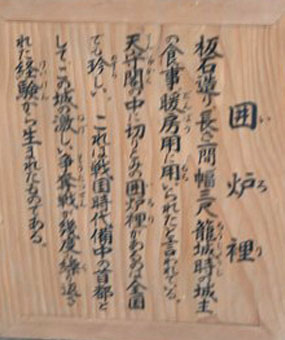 囲炉裡
板石造り長さ一間幅三尺籠城時の城主
の食事、暖房用に用いられたと言われている。
天守閣の中に切りこみの囲炉裡があるのは全国
でも珍しい、これは戦国時代備中の首都と
してこの城の激しい争奪戦が幾度 繰り返さ
れた経験から生まれたものである。